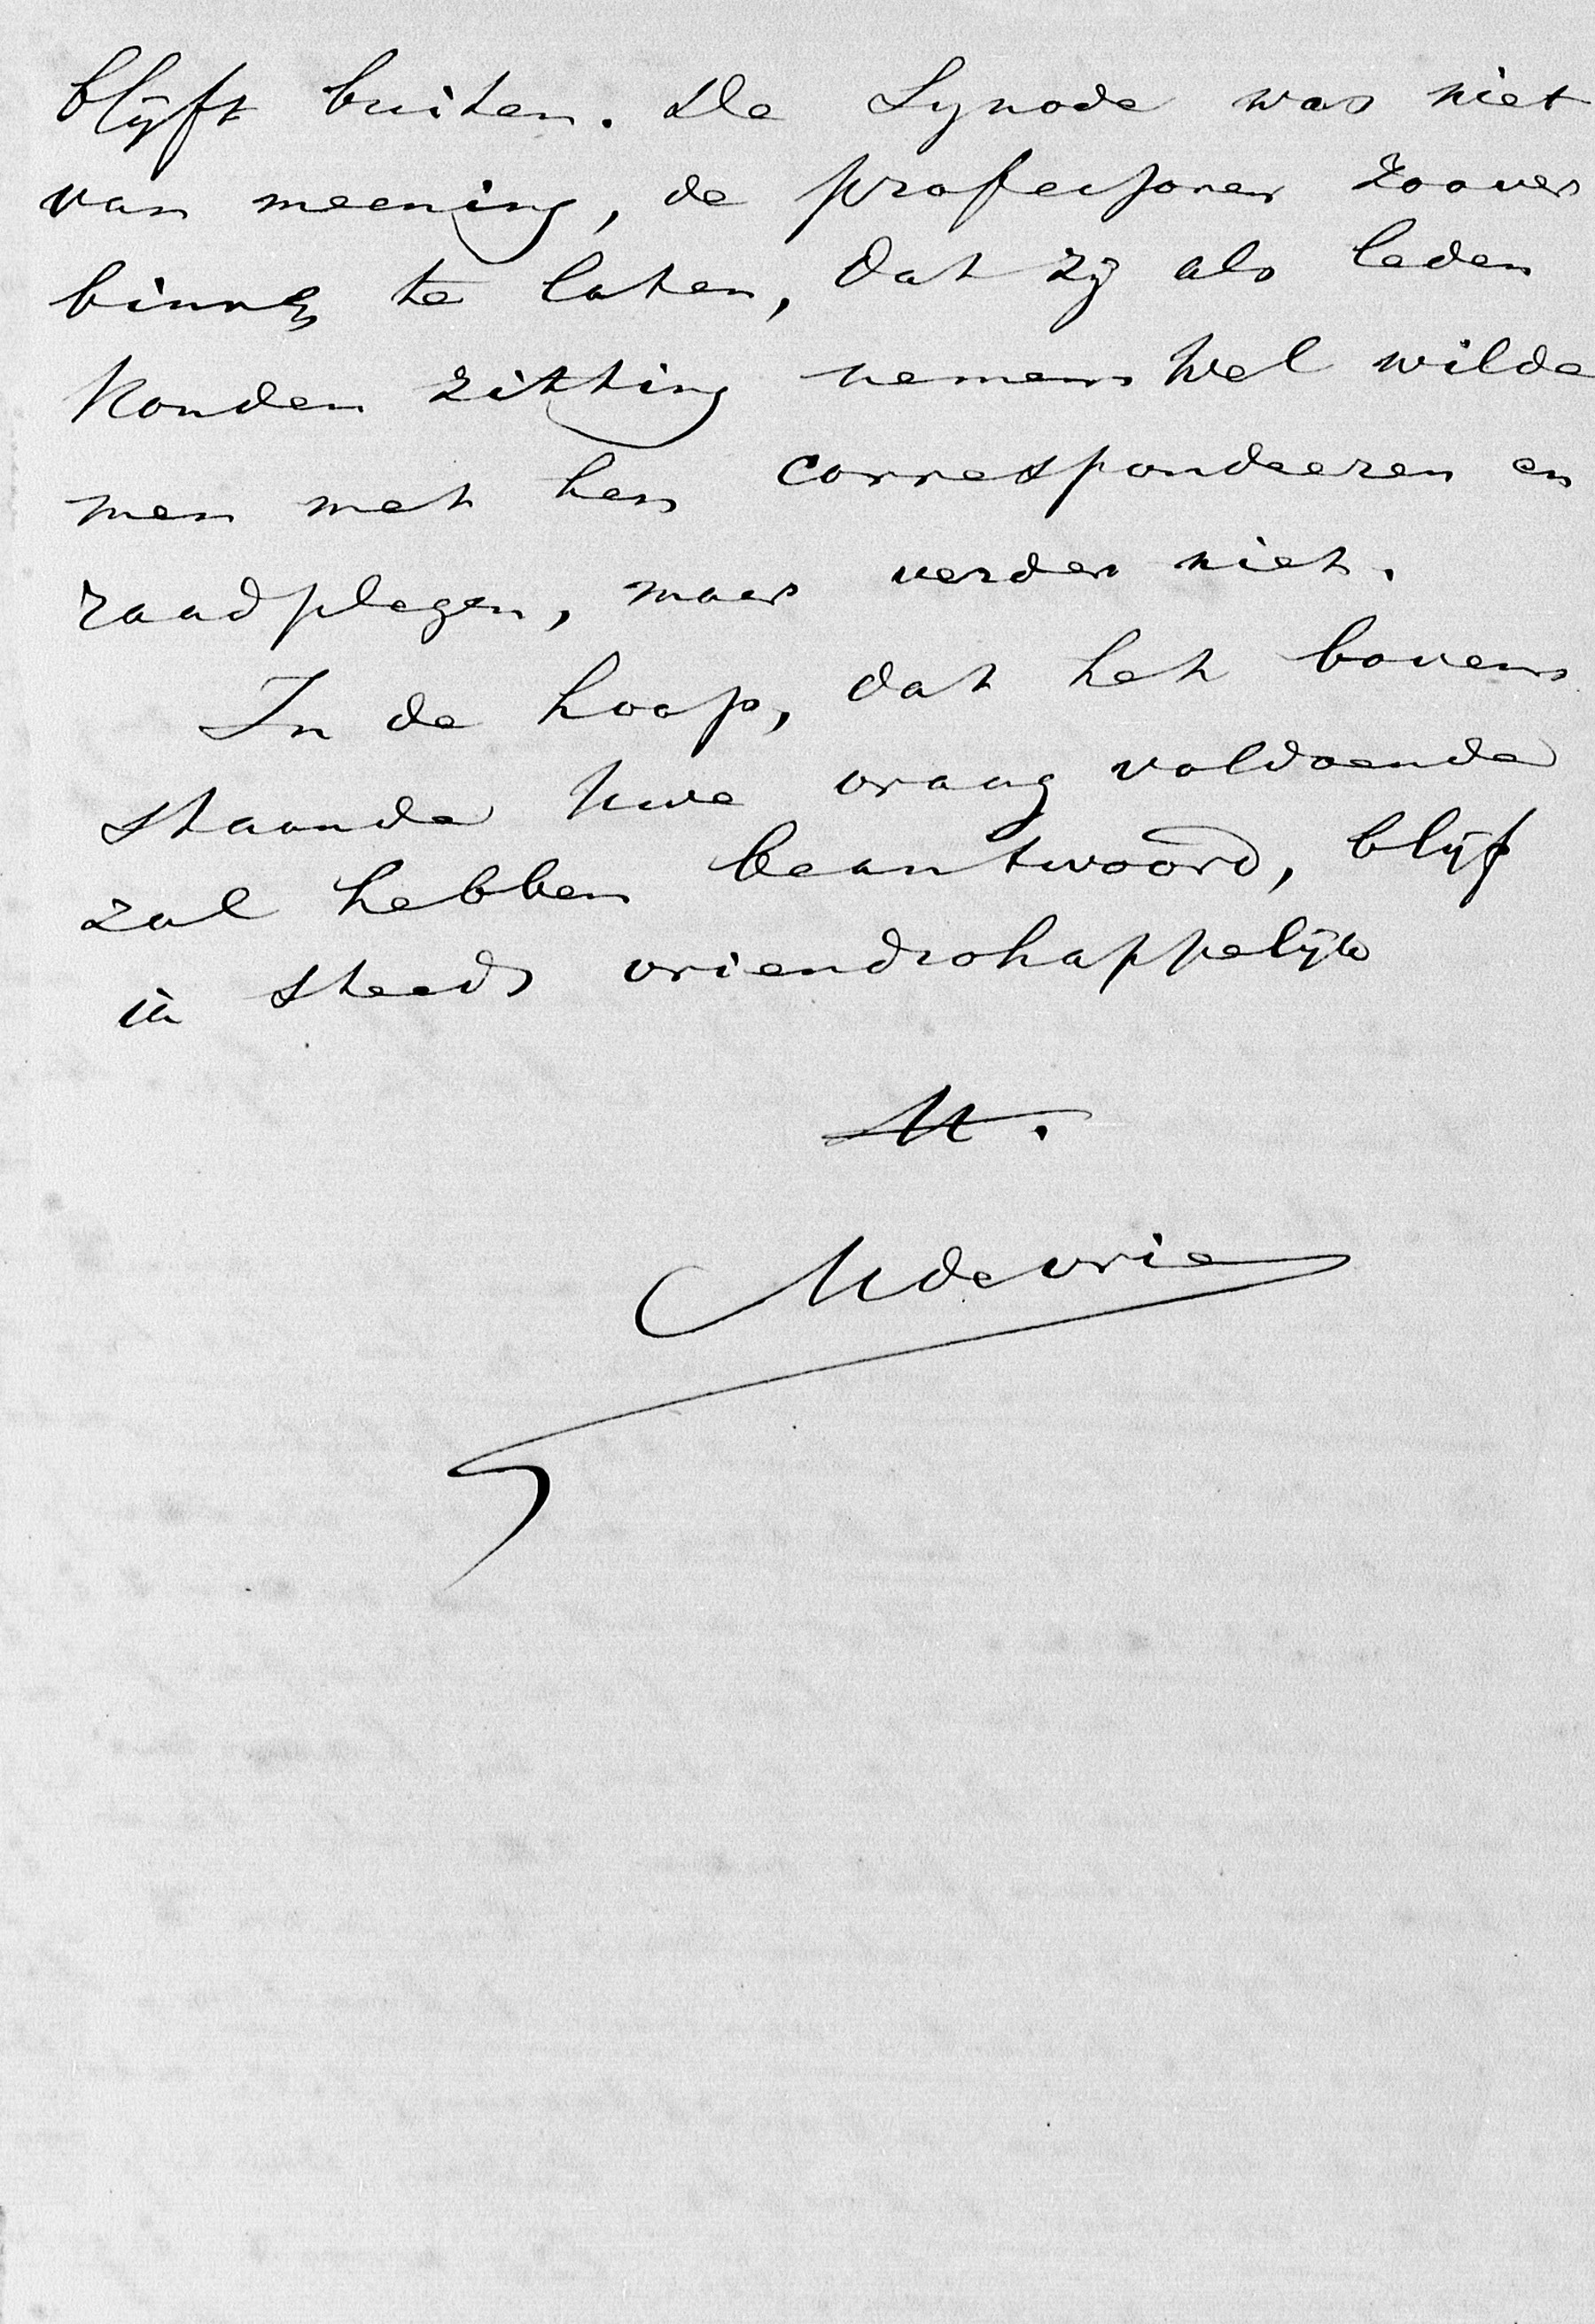 blijft buiten. De Synode was niet
van meening, de professoren zoover
binnen te laten, dat zij als leden
konden zitting nemen. Wel wilde
men met hen correspondeeren en
raadplegen, maar verder niet.
In de hoop, dat het boven
staande Uwe vraag voldoende
zal hebben beantwoord, blijf
ik steeds vriendschappelijk
de Vries